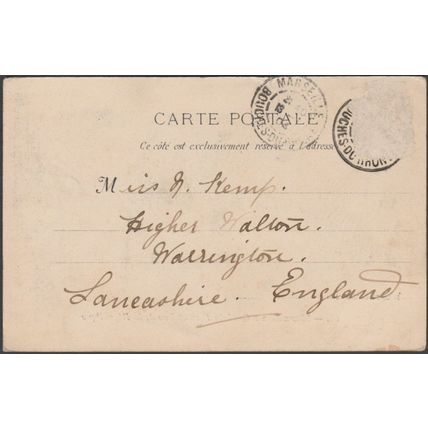 MARSEILLE
BOUCHES-DU-RHONE
CARTE POSTALE
Ce côté est exclusivement réservé à l'adresse
OUCHES-DU-RHON
Miss N. Kemp.
Higher Walton.
Warrington.
Lancashire. England